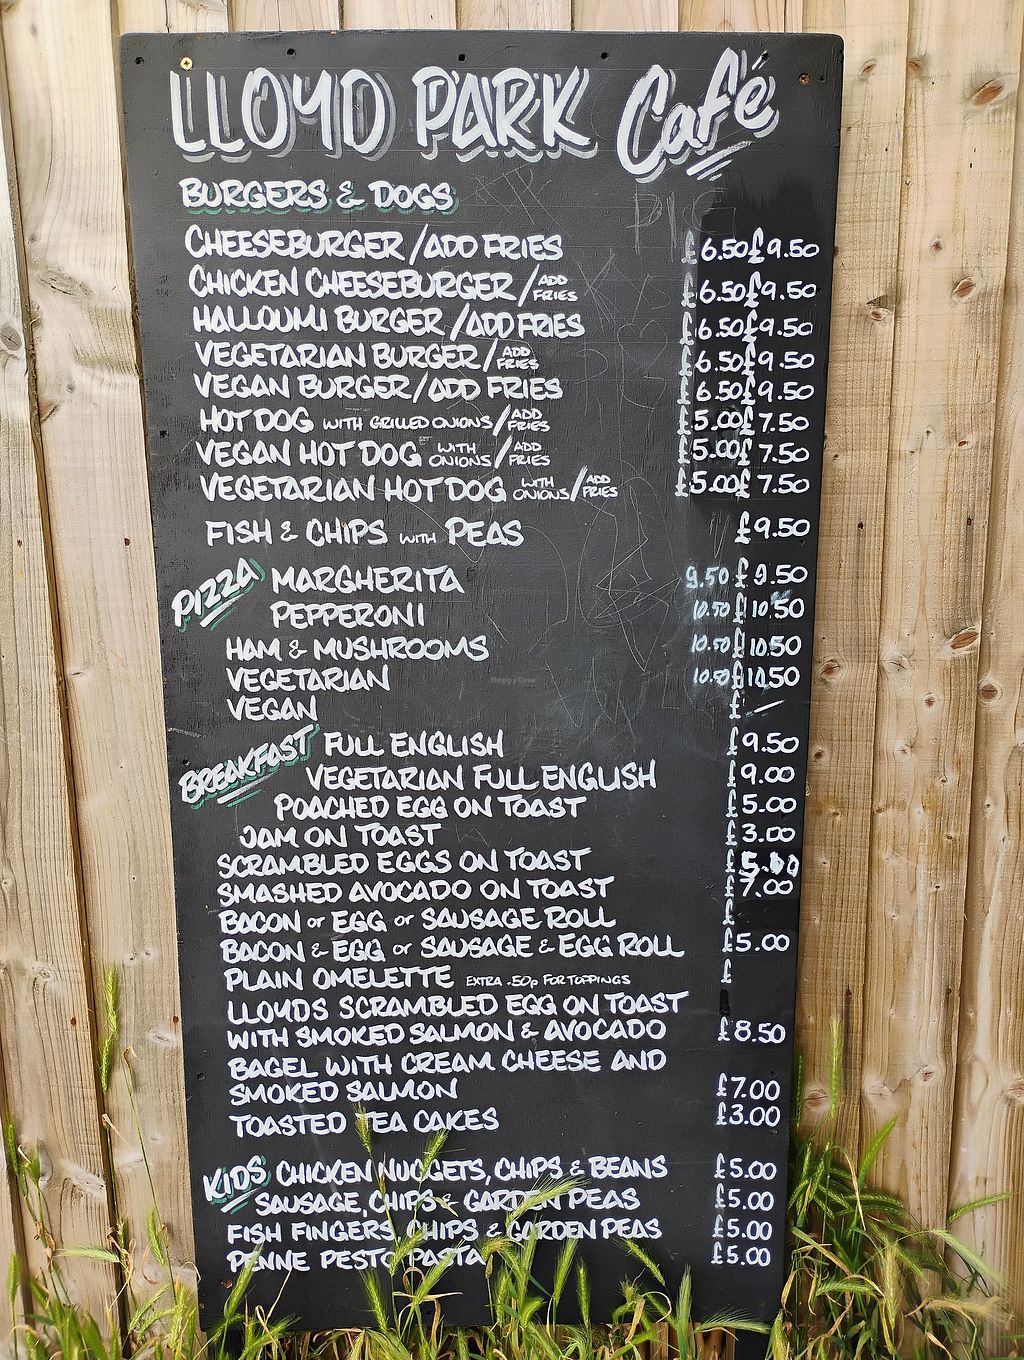 LLOYD PARK Café
BURGERS & DOGS
CHEESEBURGER/ADD FRIES £6.50 £9.50
CHICKEN CHEESEBURGER/ADD FRIES £6.50 £9.50
HALLOUMI BURGER/ADD FRIES £6.50 £9.50
VEGETARIAN BURGER/ADD FRIES £6.50 £9.50
VEGAN BURGER/ADD FRIES £6.50 £9.50
HOT DOG WITH GRILLED ONIONS/ADD FRIES £5.00 £7.50
VEGAN HOT DOG WITH ONIONS/ADD FRIES £5.00 £7.50
VEGETARIAN HOT DOG WITH ONIONS/ADD FRIES £5.00 £7.50
FISH & CHIPS WITH PEAS £9.50
PIZZA MARGHERITA 9.50 £9.50
PEPPERONI 10.50 £10.50
HAM & MUSHROOMS 10.50 £10.50
VEGETARIAN 10.50 £10.50
VEGAN £ -
BREAKFAST FULL ENGLISH £9.50
VEGETARIAN FULL ENGLISH £9.00
POACHED EGG ON TOAST £5.00
JAM ON TOAST £3.00
SCRAMBLED EGGS ON TOAST £5.00
SMASHED AVOCADO ON TOAST £7.00
BACON or EGG or SAUSAGE ROLL £
BACON & EGG or SAUSAGE & EGG ROLL £5.00
PLAIN OMELETTE EXTRA .50p FOR TOPPINGS £
LLOYDS SCRAMBLED EGG ON TOAST
WITH SMOKED SALMON & AVOCADO £8.50
BAGEL WITH CREAM CHEESE AND
SMOKED SALMON £7.00
TOASTED TEA CAKES £3.00
KIDS CHICKEN NUGGETS, CHIPS & BEANS £5.00
SAUSAGE, CHIPS & GARDEN PEAS £5.00
FISH FINGERS, CHIPS & GARDEN PEAS £5.00
PENNE PESTO PASTA £5.00